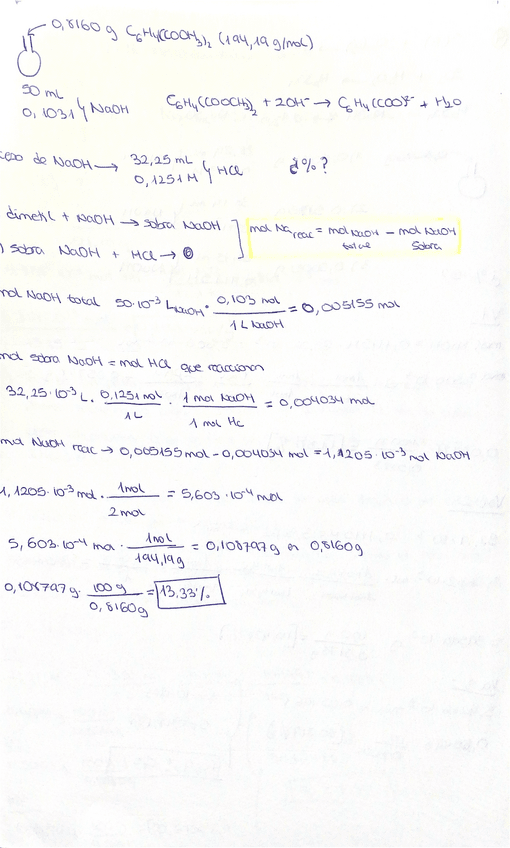 0,8160 g C6H4(COOCH3)2 (194,19 g/mol)
50 mL
0,1031 } NaOH
C6H4(COOCH3)2 + 2OH⁻ → C6H4(COO)²⁻ + H2O
ceso de NaOH → 32,25 mL
0,1251 M } HCl
¿%?
dimetil + NaOH → sobra NaOH
) sobra NaOH + HCl → 0
mol Na reac = mol NaOH total - mol NaOH sobra
mol NaOH total 50·10⁻³ L NaOH · 0,103 mol / 1 L NaOH = 0,005155 mol
mol sobra NaOH = mol HCl que reaccionan
32,25·10⁻³ L · 0,1251 mol / 1L · 1 mol NaOH / 1 mol Hc = 0,004034 mol
mol NaOH reac → 0,005155 mol - 0,004034 mol = 1,1205·10⁻³ mol NaOH
1,1205·10⁻³ mol · 1mol / 2mol = 5,603·10⁻⁴ mol
5,603·10⁻⁴ mol · 1mol / 194,19g = 0,108797g en 0,8160g
0,108797g · 100g / 0,8160g = 13,33%